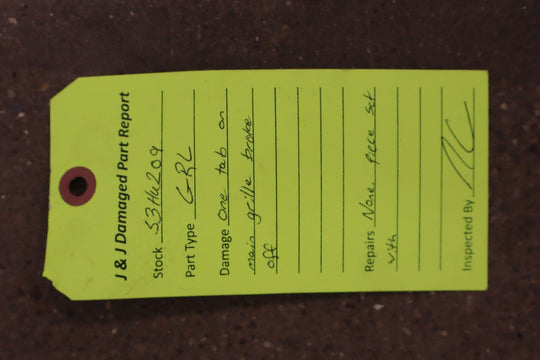 J & J Damaged Part Report
Stock S3HU209
Part Type GRL
Damage One tab on
main grille broke
off
Repairs None. piece set
with
Inspected By